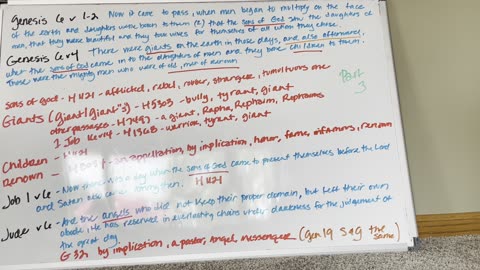 Genesis 6 v 1-2 Now it came to pass, when men began to multiply on the face
of the earth and daughters were born to them (2) that the sons of God saw the daughters of
men, that they were beautiful and they took wives for themselves of all whom they chose.
Genesis 6 v 4 There were giants on the earth in those days, and also afterward,
when the sons of God came in to the daughters of men and they bore children to them.
Those were the mighty men who were of old, men of renown.
Part
3
sons of god - H1121 - afflicted, rebel, robber, stranger, tumultuous one
Giants (giant/giant's) - H5303 - bully, tyrant, giant
other passages - H7497 - a giant, Rapha, Rephaim, Rephaims
1 Job 16 v 14 - H1368 - warrior, tyrant, giant
Children - H1121
Renown - an appellation, by implication, honor, fame, infamous, renown
Job 1 v 6 - Now there was a day when the sons of God came to present themselves before the Lord
and Satan also came among them. H1121
Jude v 6 - And the angels who did not keep their proper domain, but left their own
abode, He has reserved in everlasting chains under darkness for the judgement of
the great day.
G32 by implication, a pastor, angel, messenger (Gen 19 5 & 9 the same)